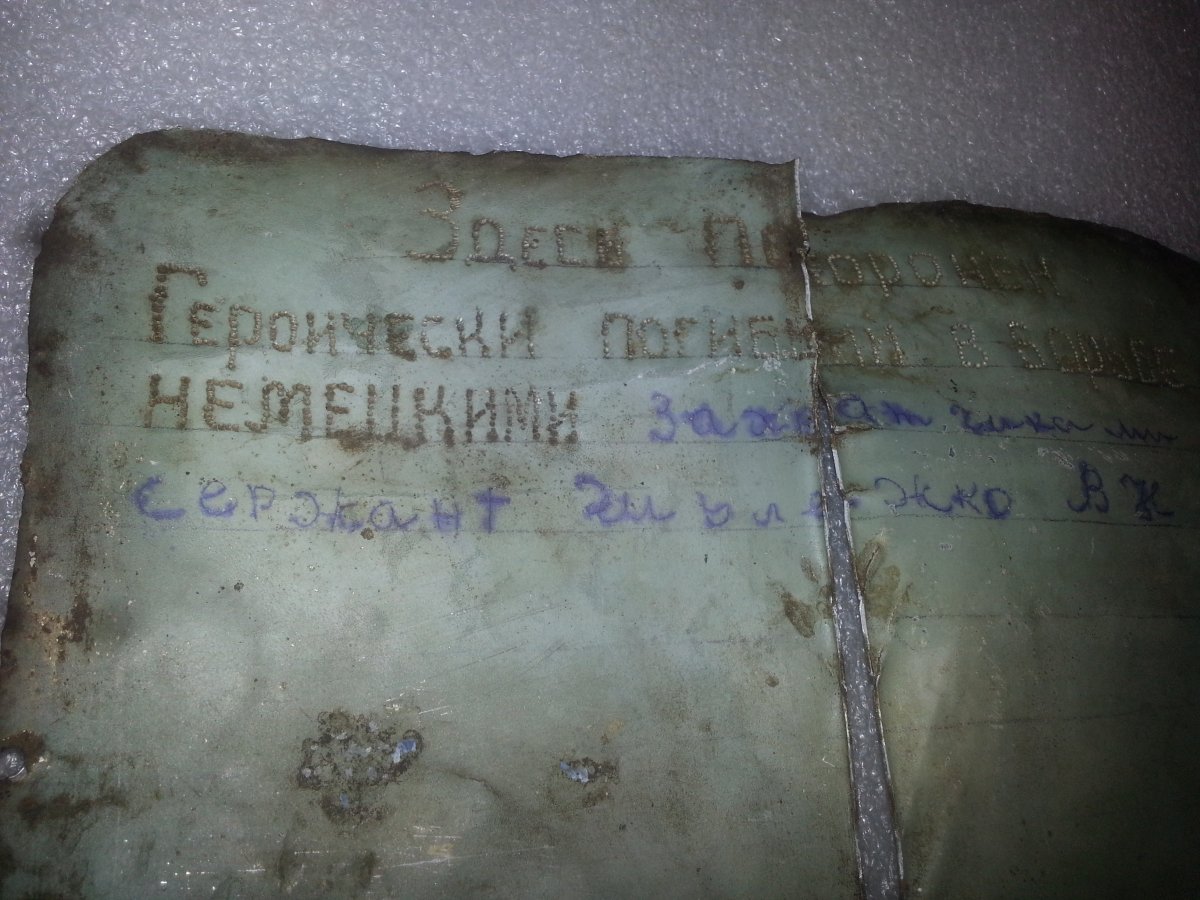 Здесь похоронен
Героически погибший в борьбе
немецкими захватчиками
сержант ВК